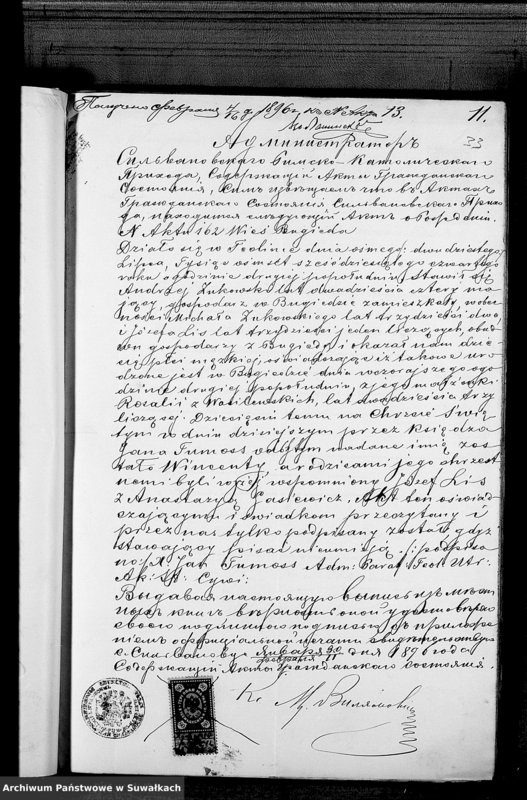 Получено февраля 4/16 д. 1896 г. къ № 13.
11.
33
Администраторъ
Сильвановскаго Римско-Католическаго
Прихода, Содержащій Акты Гражданскаго
Состоянія, Симъ что въ Актахъ
Гражданскаго Состоянія Сильвановскаго Прихо-
да, находится слѣдующій Актъ о Рожденіи.
N Akta 162 Wieś Bugieda
Działo się w Teolinie dnia ósmego: dwudziestego
Lipca, Tysiąc ośmset sześćdziesiątego czwartego
roku o godzinie drugiej popołudniu, Stawił się
Andrzej Żukowski lat dwadzieścia cztery ma-
jący, gospodarz w Bugiedzie zamieszkały, w obec-
ności Michała Żukowskiego lat trzydzieści dwa,
i Józefa Lis lat trzydzieści jeden liczących, obudwu
gospodarzy z Bugiedy, i okazał nam dzie-
cię płci męzkiej, oświadczając iż takowe uro-
dzone jest w Bugiedzie dnia wczorajszego o go-
dzinie drugiej popołudniu, z jego małżonki
Rozalii z Wasilewskich, lat dwadzieścia trzy
liczącej. Dziecięciu temu na Chrzcie Swię-
tym w dniu dzisiejszym przez księdza
Jana Tumoss odbytym nadane imię zos-
tało Wincenty, a rodzicami jego chrzest-
nemi byli wyżej wspomniony Józef Lis
z Anastazyą Casiewicz. Akt ten oświad-
czającemu i świadkom przeczytany i
przez nas tylko podpisany został, gdyż
stawający pisać nieumieją. /:podpisa-
no:/ X. Jan Tumoss Adm: Paraf: Teol: Utr:
Ak: St: Cywi:
Выдавая настоящую выпись изъ
книгъ, вѣрность оной удостовѣряю
своего подписью съ приложе-
ніемъ оффиціальной печати
с. Сильвановцы Января 30/Февраля 11 дня 1896 года
Содержащій Акты Гражданскаго состоянія.
Кс.
Archiwum Państwowe w Suwałkach